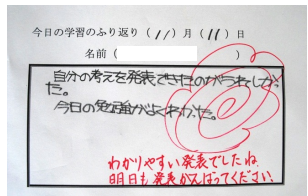 今日の学習のふり返り（11）月（11）日
名前（　　　　　　）
自分の考えを発表できたのがうれしかっ
た。
今日の勉強がよくわかった。
わかりやすい発表でしたね
明日も発表がんばってください。